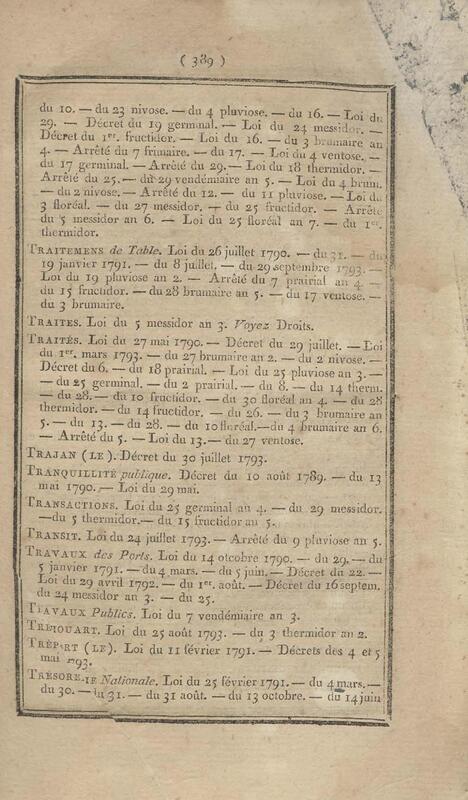 ( 389 )
du 10. — du 23 nivose. — du 4 pluviose. — du 16. — Loi du
29. — Décret du 19 germinal. — Loi du 24 messidor. —
Décret du 1er. fructidor. — Loi du 16. — du 3 brumaire an
4. — Arrêté du 7 frimaire. — du 17. — Loi du 4 ventose. —
du 17 germinal. — Arrêté du 29. — Loi du 18 thermidor. —
Arrêté du 25. — du 29 vendémiaire an 5. — Loi du 4 brum.
— du 2 nivose. — Arrêté du 12. — du 11 pluviose. — Loi du
3 floréal. — du 27 messidor. — du 25 fructidor. — Arrêté
du 5 messidor an 6. — Loi du 25 floréal an 7. — du 1er.
thermidor.
TRAITEMENS de Table. Loi du 26 juillet 1790. — du 31. — du
19 janvier 1791. — du 8 juillet. — du 29 septembre 1793. —
Loi du 19 pluviose an 2. — Arrêté du 7 prairial an 4. —
du 15 fructidor. — du 28 brumaire an 5. — du 17 ventose. —
du 3 brumaire.
TRAITES. Loi du 5 messidor an 3. Voyez Droits.
TRAITÉS. Loi du 27 mai 1790. — Décret du 29 juillet. — Loi
du 1er. mars 1793. — du 27 brumaire an 2. — du 2 nivose. —
Décret du 6. — du 18 prairial. — Loi du 25 pluviose an 3. —
— du 25 germinal. — du 2 prairial. — du 8. — du 14 therm.
— du 28. — du 10 fructidor. — du 30 floréal an 4. — du 28
thermidor. — du 14 fructidor. — du 26. — du 3 brumaire an
5. — du 13. — du 28. — du 10 floréal. — du 4 brumaire an 6.
— Arrêté du 5. — Loi du 13. — du 27 ventose.
TRAJAN (LE). Décret du 30 juillet 1793.
TRANQUILLITÉ publique. Décret du 10 août 1789. — du 13
mai 1790. — Loi du 29 mai.
TRANSACTIONS. Loi du 25 germinal an 4. — du 29 messidor.
— du 5 thermidor. — du 15 fructidor an 5.
TRANSIT. Loi du 24 juillet 1793. — Arrêté du 9 pluviose an 5.
TRAVAUX des Ports. Loi du 14 otcobre 1790. — du 29. — du
5 janvier 1791. — du 4 mars. — du 5 juin. — Décret du 22. —
Loi du 29 avril 1792. — du 1er. août. — Décret du 16 septem.
du 24 messidor an 3. — du 25.
TRAVAUX Publics. Loi du 7 vendémiaire an 3.
TRÉHOUART. Loi du 25 août 1793. — du 3 thermidor an 2.
TRÉPORT (LE). Loi du 11 février 1791. — Décrets des 4 et 5
mai 1793.
TRÉSORERIE Nationale. Loi du 25 février 1791. — du 4 mars. —
du 30. — du 31. — du 31 août. — du 13 octobre. — du 14 juin